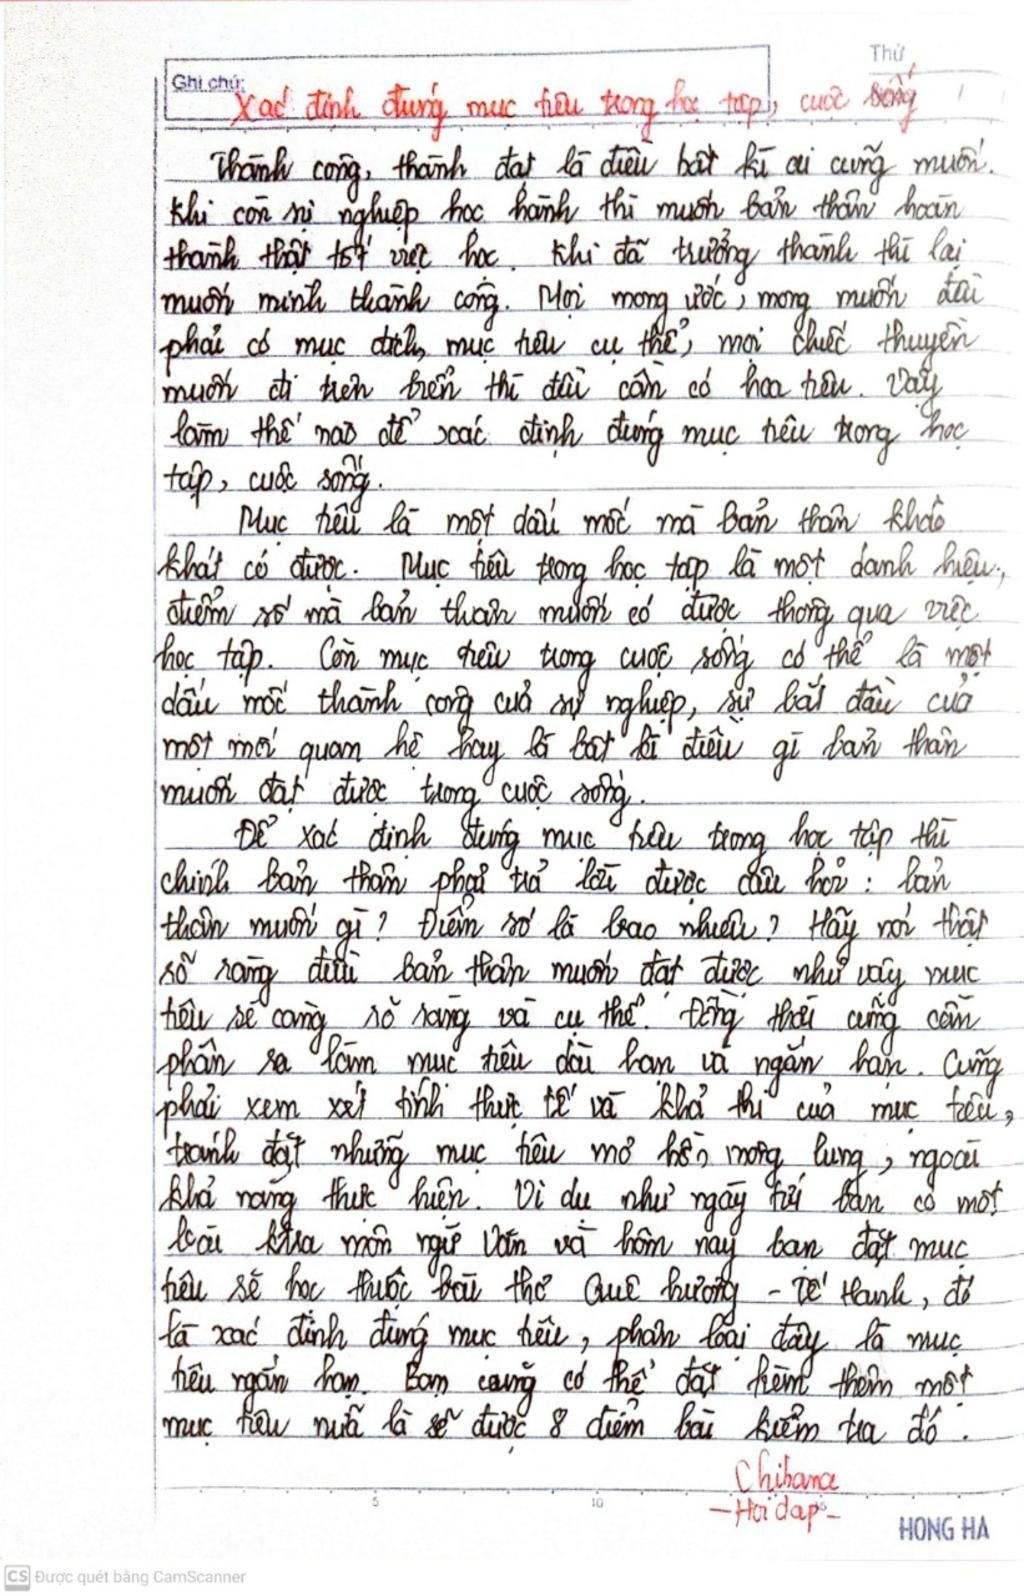 Thứ
Ghi chú:
Xác định đúng mục tiêu trong học tập, cuộc sống
Thành công, thành đạt là điều bất kì ai cũng muốn.
Khi còn sự nghiệp học hành thì muốn bản thân hoàn
thành thật tốt việc học. Khi đã trưởng thành thì lại
muốn mình thành công. Mọi mong ước, mong muốn đều
phải có mục đích, mục tiêu cụ thể, mọi chiếc thuyền
muốn đi trên biển thì đều cần có hoa tiêu. Vậy
làm thế nào để xác định đúng mục tiêu trong học
tập, cuộc sống.
Mục tiêu là một dấu mốc mà bản thân khao
khát có được. Mục tiêu trong học tập là một danh hiệu,
điểm số mà bản thân muốn có được thông qua việc
học tập. Còn mục tiêu trong cuộc sống có thể là một
dấu mốc thành công của sự nghiệp, sự bắt đầu của
một mối quan hệ hay là bất kì điều gì bản thân
muốn đạt được trong cuộc sống.
Để xác định đúng mục tiêu trong học tập thì
chính bản thân phải trả lời được câu hỏi: bản
thân muốn gì? Điểm số là bao nhiêu? Hãy nói thật
rõ ràng điều bản thân muốn đạt được như vậy mục
tiêu sẽ càng rõ ràng và cụ thể. Đồng thời cũng cần
phân ra làm mục tiêu dài hạn và ngắn hạn. Cũng
phải xem xét tính thực tế và khả thi của mục tiêu,
tránh đặt những mục tiêu mơ hồ, mông lung, ngoài
khả năng thực hiện. Ví dụ như ngày tới bạn có một
bài ktra môn ngữ Văn và hôm nay bạn đặt mục
tiêu sẽ học thuộc bài thơ Quê hương - Tế Hanh, đó
là xác định đúng mục tiêu, phân loại đây là mục
tiêu ngắn hạn. Bạn cũng có thể đặt kèm thêm một
mục tiêu nữa là sẽ được 8 điểm bài kiểm tra đó.
Chibana
- Hoidap -
5 10 15
HONG HA
CS Được quét bằng CamScanner